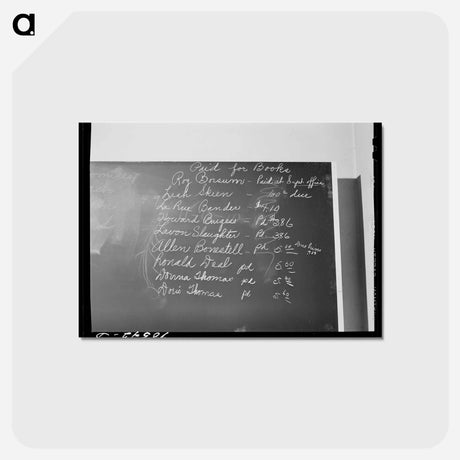 a
Paid for Books
Roy Borsum - Paid at Supt office
Leah Skeen - 60¢ due
La Rue Cander - 7.10
Howard Burgess - Pd 386
Lavon Slaughter - Pd. 386
Allen Bonestell - Pd 5.00
Ronald Deal pd 5.00
Donna Thomas pd
Doris Thomas pd